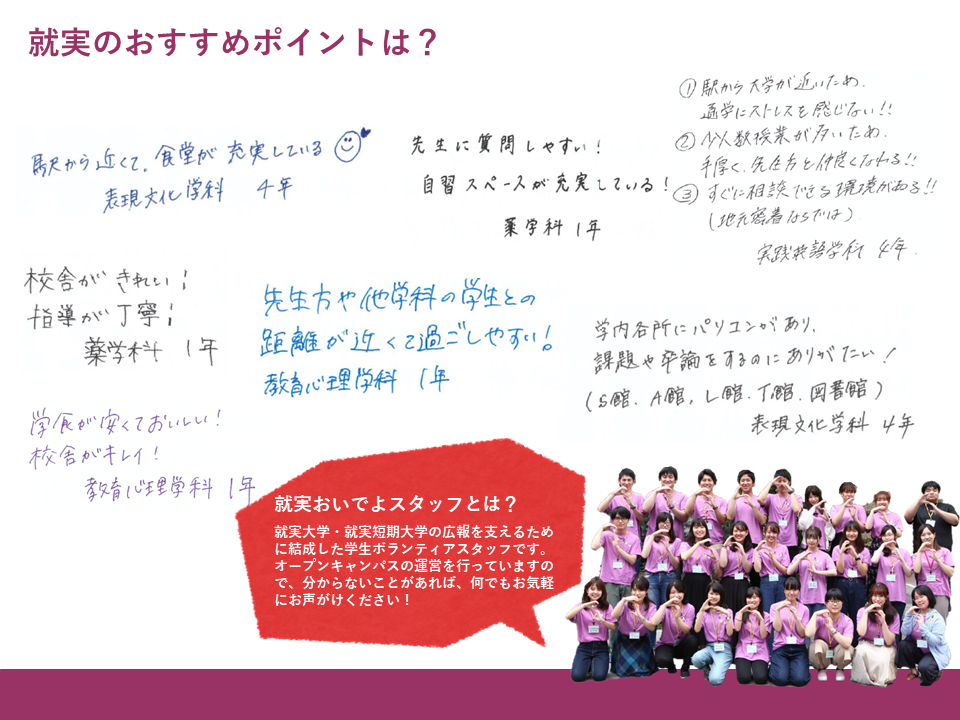 就実のおすすめポイントは？
駅から近くて、食堂が充実している
表現文化学科 4年
先生に質問しやすい！
自習スペースが充実している！
薬学科 1年
①駅から大学が近いため、
通学にストレスを感じない!!
②少人数授業が多いため、
手厚く、先生方と仲良くなれる!!
③すぐに相談できる環境がある!!
(地元密着ならでは)
実践英語学科 4年
校舎がきれい！
指導が丁寧！
薬学科 1年
先生方や他学科の学生との
距離が近くて過ごしやすい！
教育心理学科 1年
学内各所にパソコンがあり、
課題や卒論をするのにありがたい！
(S館、A館、L館、T館、図書館)
表現文化学科 4年
学食が安くておいしい！
校舎がキレイ！
教育心理学科 1年
就実おいでよスタッフとは？
就実大学・就実短期大学の広報を支えるため
に結成した学生ボランティアスタッフです。
オープンキャンパスの運営を行っていますの
で、分からないことがあれば、何でもお気軽
にお声がけください！